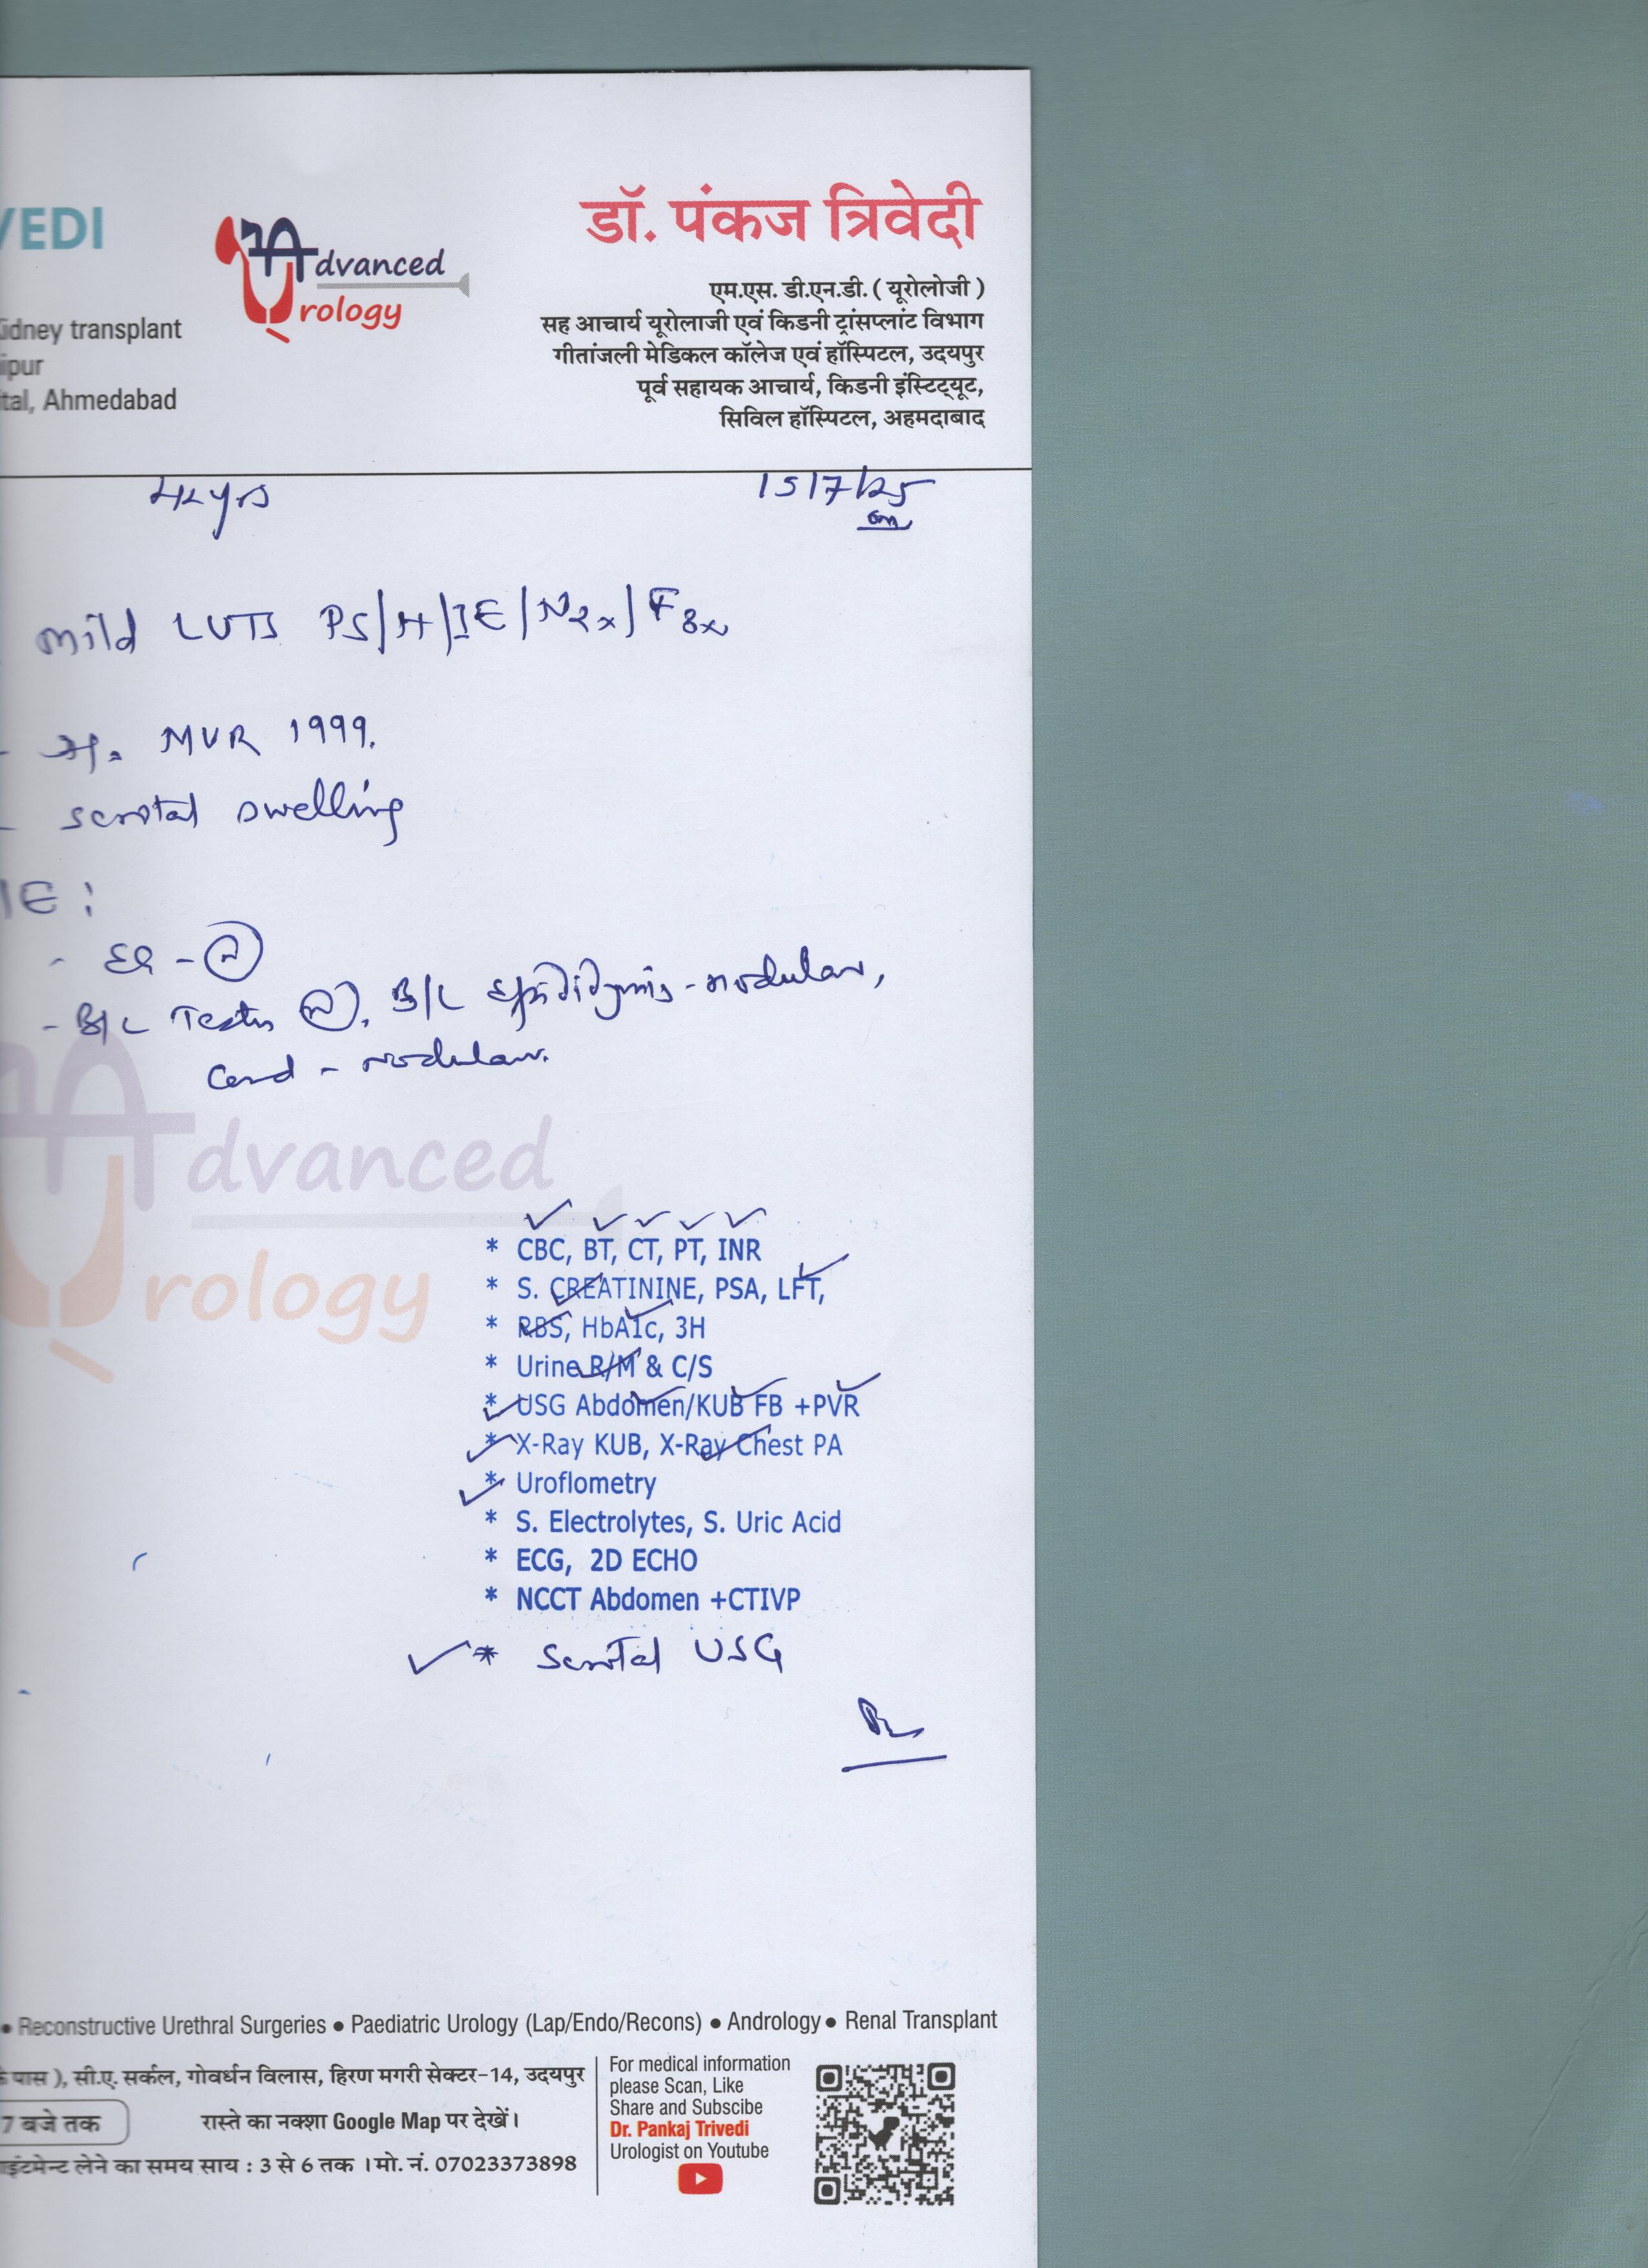 VEDI
Advanced
Urology
डॉ. पंकज त्रिवेदी
एम.एस. डी.एन.डी. ( यूरोलोजी )
सह आचार्य यूरोलाजी एवं किडनी ट्रांसप्लांट विभाग
गीतांजली मेडिकल कॉलेज एवं हॉस्पिटल, उदयपुर
पूर्व सहायक आचार्य, किडनी इंस्टिट्यूट,
सिविल हॉस्पिटल, अहमदाबाद
Kidney transplant
ipur
tal, Ahmedabad
yrs 15/7/25
mild LUTS PS/H/IE/N2x/F3x
MVR 1999.
scrotal swelling
E :
- N
- B/L Testis N, B/L epididymis - nodular,
Cord - nodular.
Advanced
Urology
* CBC, BT, CT, PT, INR
* S. CREATININE, PSA, LFT,
* RBS, HbA1c, 3H
* Urine R/M & C/S
* USG Abdomen/KUB FB +PVR
* X-Ray KUB, X-Ray Chest PA
* Uroflometry
* S. Electrolytes, S. Uric Acid
* ECG, 2D ECHO
* NCCT Abdomen +CTIVP
* Scrotal USG
• Reconstructive Urethral Surgeries • Paediatric Urology (Lap/Endo/Recons) • Andrology • Renal Transplant
के पास ), सी.ए. सर्कल, गोवर्धन विलास, हिरण मगरी सेक्टर-14, उदयपुर
7 बजे तक रास्ते का नक्शा Google Map पर देखें।
इंटमेन्ट लेने का समय साय : 3 से 6 तक । मो. नं. 07023373898
For medical information
please Scan, Like
Share and Subscibe
Dr. Pankaj Trivedi
Urologist on Youtube